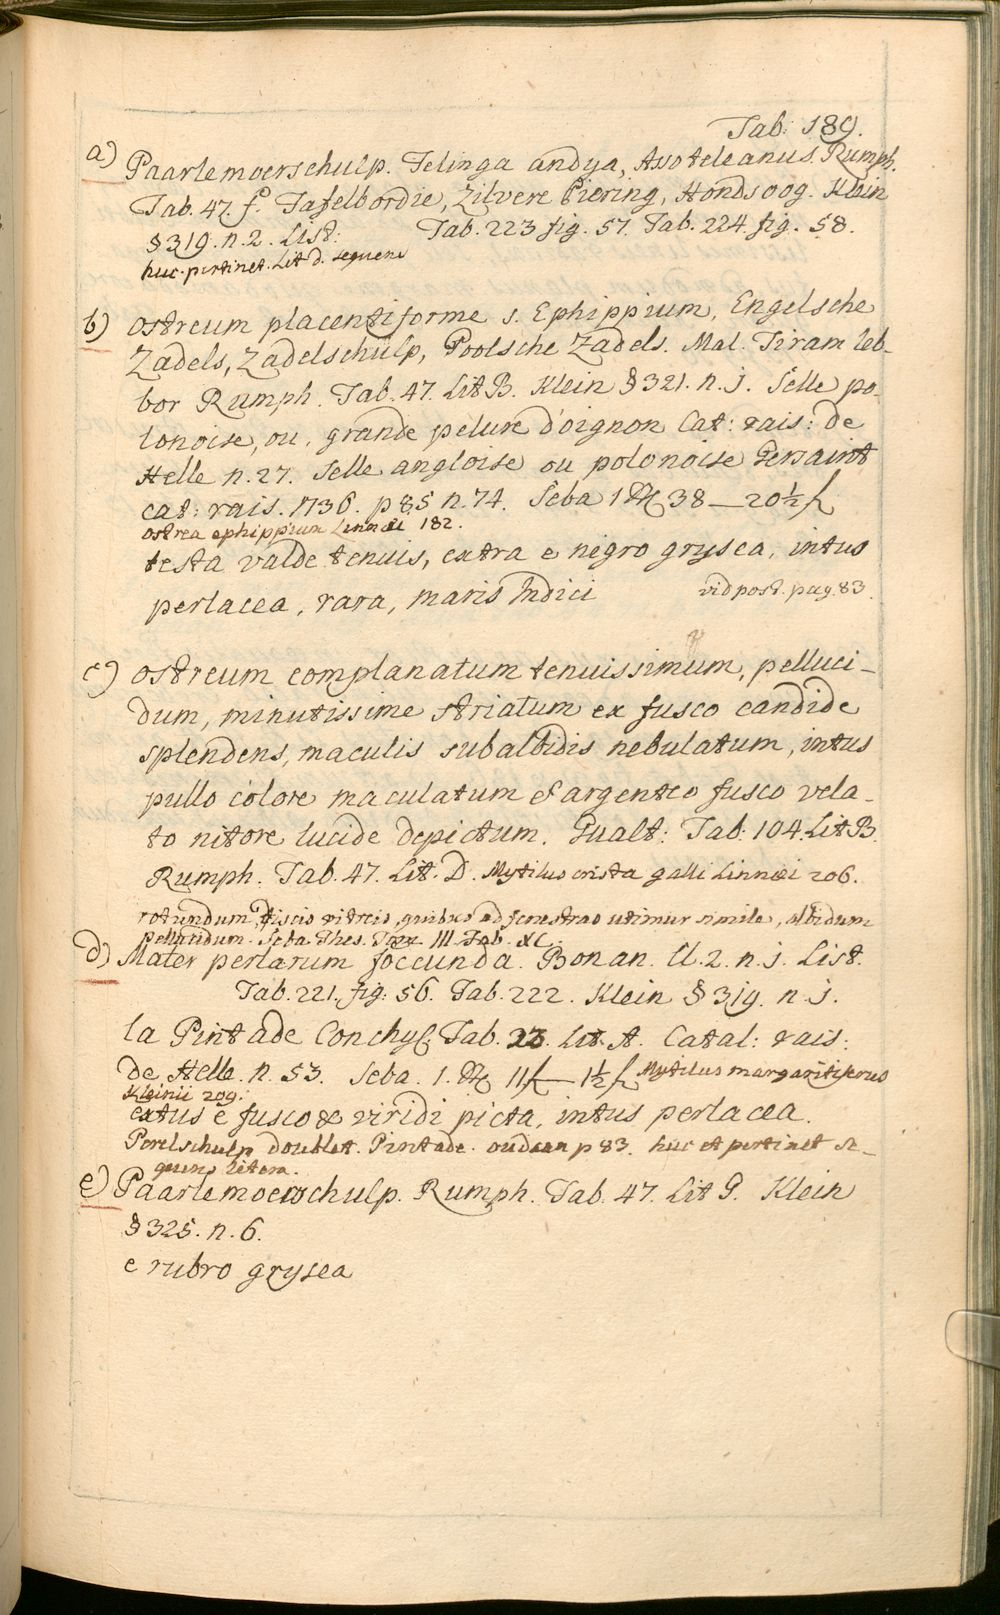 Tab: 189.
a) Paarlemoerschulp. Telinga andya, Avoteleanus. Rumph.
Tab. 47. f. Tafelbordie, Zilvere Piering, Hondsoog. Klein
§ 319. n. 2. List: Tab. 223 fig. 57. Tab. 224. fig. 58.
huc. pertinet. Lit d. sequens
b) Ostreum placentiforme s. Ephippium, Engelsche
Zadels, Zadelschulp, Poolsche Zadels. Mal. Tiram leb-
bor Rumph. Tab. 47. Lit B. Klein § 321. n. 1. Selle po-
lonoise, ou, grande pelure d'oignon Cat: rais: de
Helle n. 27. Selle angloise ou polonoise Gersaint
cat: rais. 1736. p 85 n. 74. Seba 1 38 — 20½
ostrea ephippium Linnæi 182.
testa valde tenuis, extra e negro grysea, intus
perlacea, rara, maris Indici vid post. pag. 83.
c) Ostreum complanatum tenuissimum, pelluci-
dum, minutissime striatum ex fusco candide
splendens, maculis subalbidis nebulatum, intus
pullo colore maculatum & argenteo fusco vela-
to nitore lucide depictum. Gualt: Tab: 104. Lit B.
Rumph. Tab. 47. Lit. D. Mytilus crista galli Linnæi 206.
rotundum discis vitreis, quibus ad fenestras utimur simile, albidum
pellucidum. Seba Thes. III Tab. XC.
d) Mater perlarum foccunda. Bonan. Cl. 2. n. 1. List.
Tab. 221. fig: 56. Tab. 222. Klein § 319. n. 1.
la Pintade Conchyl. Tab. 23. Lit. A. Catal: rais:
de Helle. n. 53. Seba. 1. 11 — 1½ Mytilus margaritiferus
Kleinii 209.
extus e fusco & viridi picta, intus perlacea.
Perelschulp doublet. Pintade. oudaan p 83. huc et pertinet se-
quens litera.
e) Paarlemoerschulp. Rumph. Tab. 47. Lit G. Klein
§ 325. n. 6.
e rubro grysea